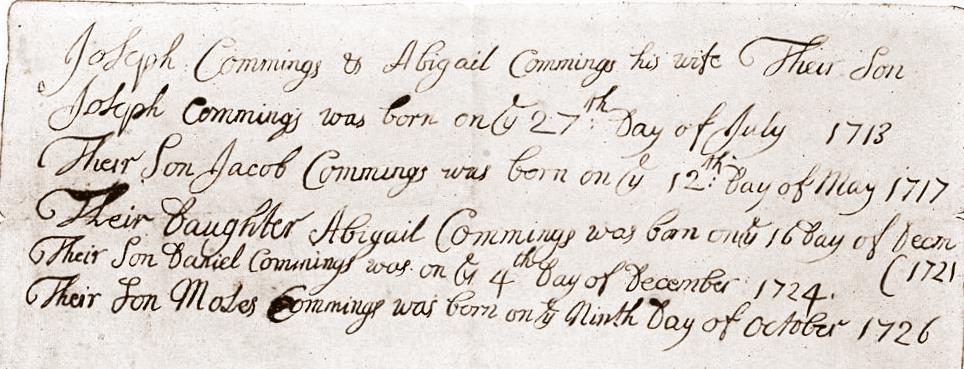 Joseph Commings & Abigail Commings his wife Their Son
Joseph Commings was born on ye 27th Day of July 1713
Their Son Jacob Commings was born on ye 12th Day of May 1717
Their Daughter Abigail Commings was born on ye 16 Day of Decm
(1721
Their Son Daniel Commings was on ye 4th Day of December 1724.
Their Son Moses Commings was born on ye Ninth Day of October 1726